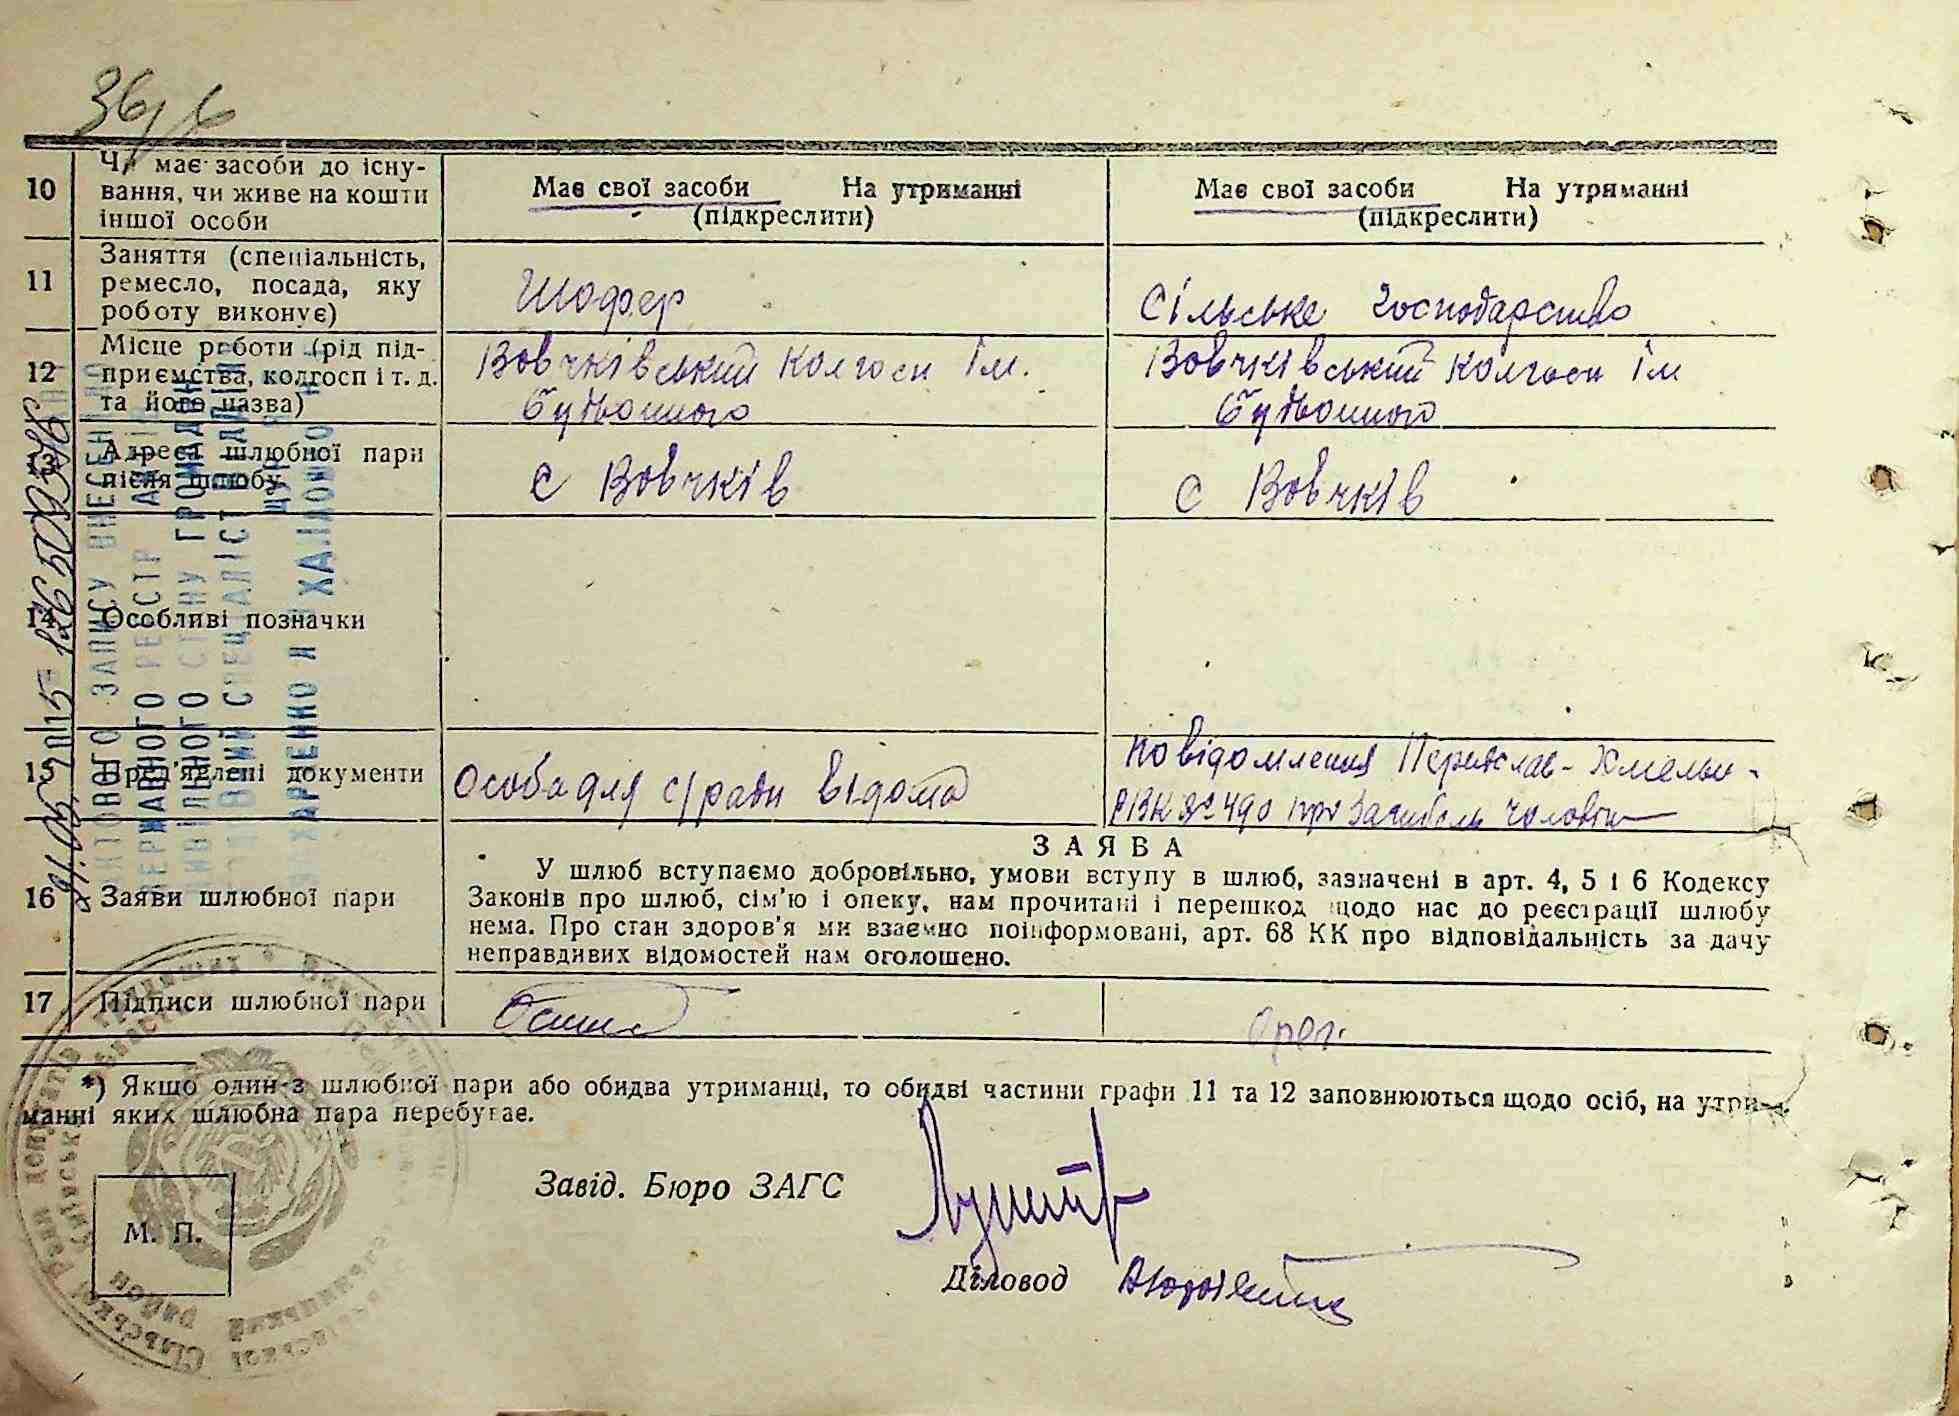 36/
10 Чи має засоби до існу-
вання, чи живе на кошти
іншої особи
Має свої засоби На утриманні
(підкреслити)
Має свої засоби На утриманні
(підкреслити)
11 Заняття (спеціальність,
ремесло, посада, яку
роботу виконує)
Шофер
Сільське господарство
12 Місце роботи (рід під-
приємства, колгосп і т. д.
та його назва)
Вовчківський колгосп ім.
Будьонного
Вовчківський колгосп ім
Будьонного
13 Адреса шлюбної пари
після шлюбу
с Вовчків
с Вовчків
14 Особливі позначки
15 Пред'явлені документи
Особа для с/ради відома
Повідомлення Переяслав-Хмельн-
РВК № 490 про загибель чоловіка
16 Заяви шлюбної пари
ЗАЯВА
У шлюб вступаємо добровільно, умови вступу в шлюб, зазначені в арт. 4, 5 і 6 Кодексу
Законів про шлюб, сім'ю і опеку, нам прочитані і перешкод щодо нас до реєстрації шлюбу
нема. Про стан здоров'я ми взаємно поінформовані, арт. 68 КК про відповідальність за дачу
неправдивих відомостей нам оголошено.
17 Підписи шлюбної пари
*) Якщо один з шлюбної пари або обидва утриманці, то обидві частини графи 11 та 12 заповнюються щодо осіб, на утри-
манні яких шлюбна пара перебуває.
Завід. Бюро ЗАГС
М. П.
Діловод
АКТОВОГО ЗАПИСУ ВНЕСЕНО
ДЕРЖАВНОГО РЕЄСТР
ЦИВІЛЬНОГО СТАНУ ГРОМАДЯН
СПЕЦІАЛІСТ
ХАРЕНКО
Сільської Ради депутатів трудящих
район